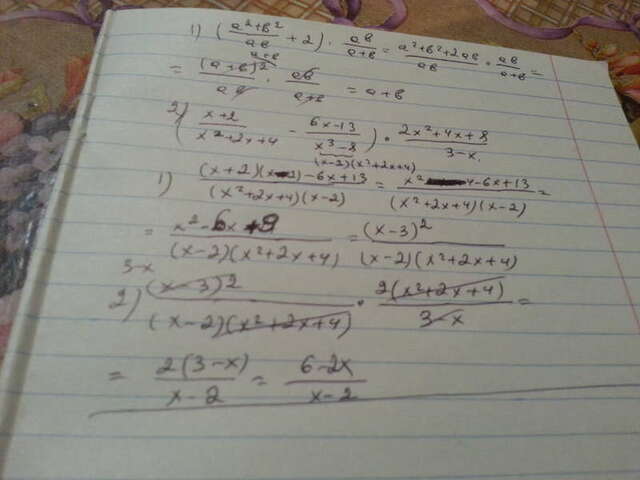 1) (a²+b²/ab + 2) · ab/a+b = a²+b²+2ab/ab · ab/a+b =
a+b
= (a+b)²/ab · ab/a+b = a+b
2) (x+2/x²+2x+4 - 6x-13/x³-8) · 2x²+4x+8/3-x
(x-2)(x²+2x+4)
1) (x+2)(x-2)-6x+13/(x²+2x+4)(x-2) = x²-4-6x+13/(x²+2x+4)(x-2) =
= x²-6x+9/(x-2)(x²+2x+4) = (x-3)²/(x-2)(x²+2x+4)
3-x
2) (x-3)²/(x-2)(x²+2x+4) · 2(x²+2x+4)/3-x =
= 2(3-x)/x-2 = 6-2x/x-2